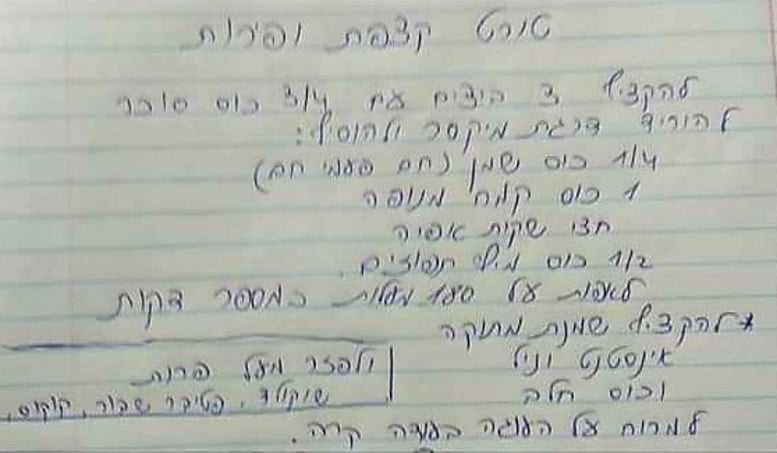 טורט קצפת ופירות
להקציף 3 ביצים עם 3/4 כוס סוכר
להוריד דרגת מיקסר ולהוסיף:
1/4 כוס שמן (חם פעמי חם)
1 כוס קמח מנופה
חצי שקית אפיה
1/2 כוס מיץ תפוזים.
לאפות על 180 מעלות כמספר דקות
*להקציף שמנת מתוקה
אינסטנט וניל
וכוס חלב
ולפזר מעל פרות
שוקולד, פטיבר שבור, קוקוס,
למרוח על העוגה בעודה קרה.